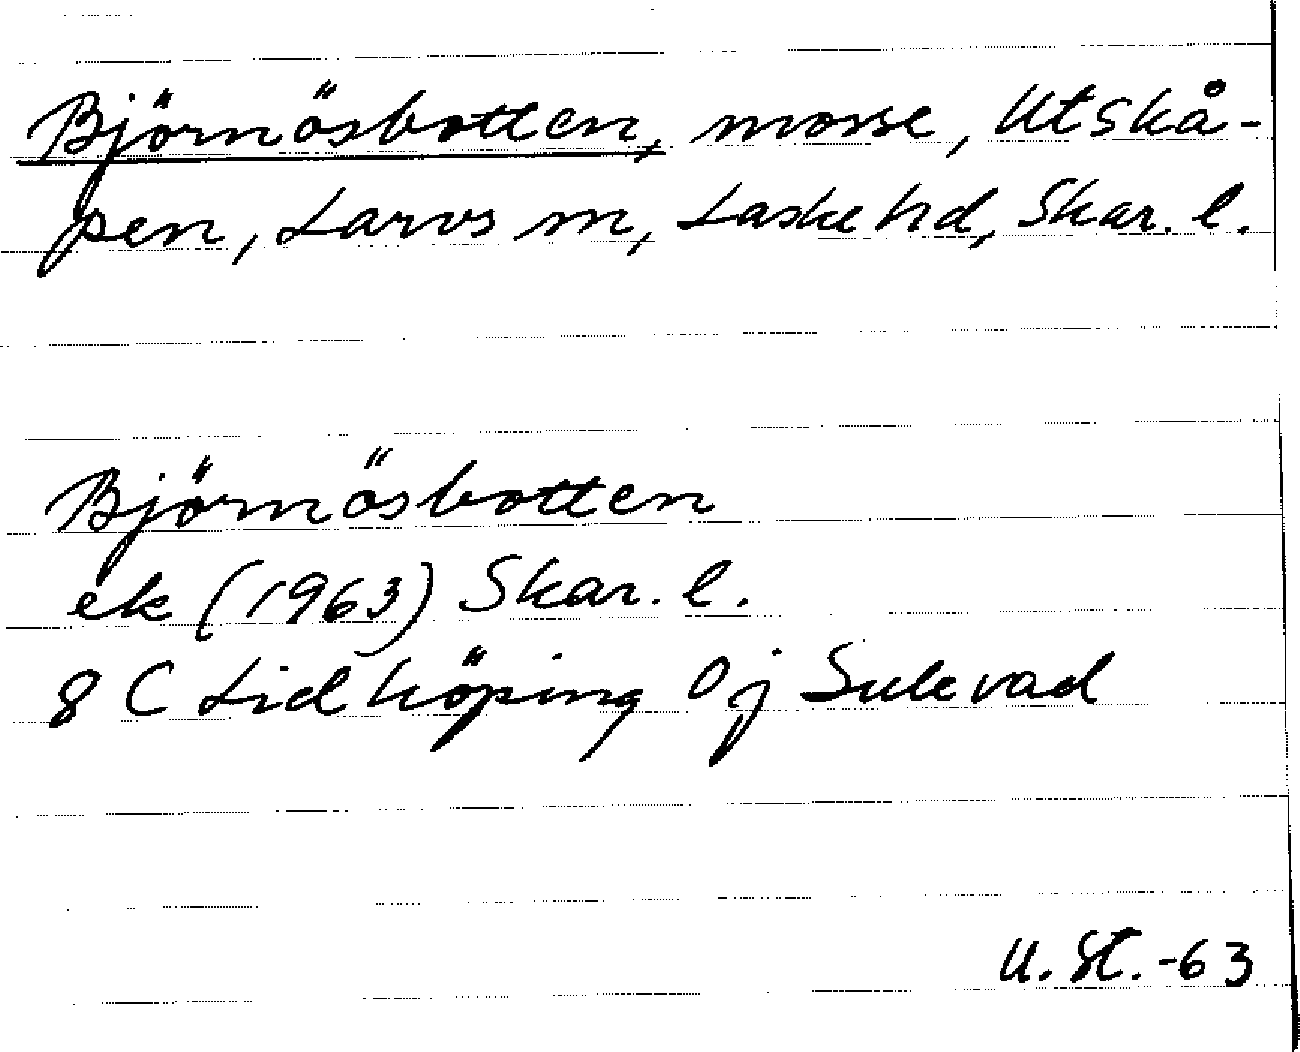 Björnösbotten, mosse, Utskå-
pen, Larvs sn, Laske hd, Skar. l.
Björnösbotten
ek (1963) Skar. l.
8 C Lidköping 0j Sulevad
U. St. -63